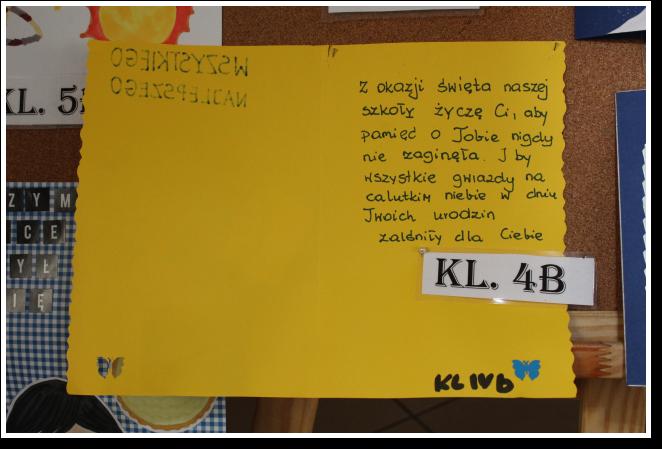 KL. 5
WSZYSTKIEGO
NAJLEPSZEGO
Z okazji święta naszej
szkoły życzę Ci, aby
pamięć o Tobie nigdy
nie zaginęła. I by
wszystkie gwiazdy na
calutkim niebie w dniu
Twoich urodzin
zalśniły dla Ciebie
KL. 4B
KL IV b
ZYM
CE
YŁ
IĘ